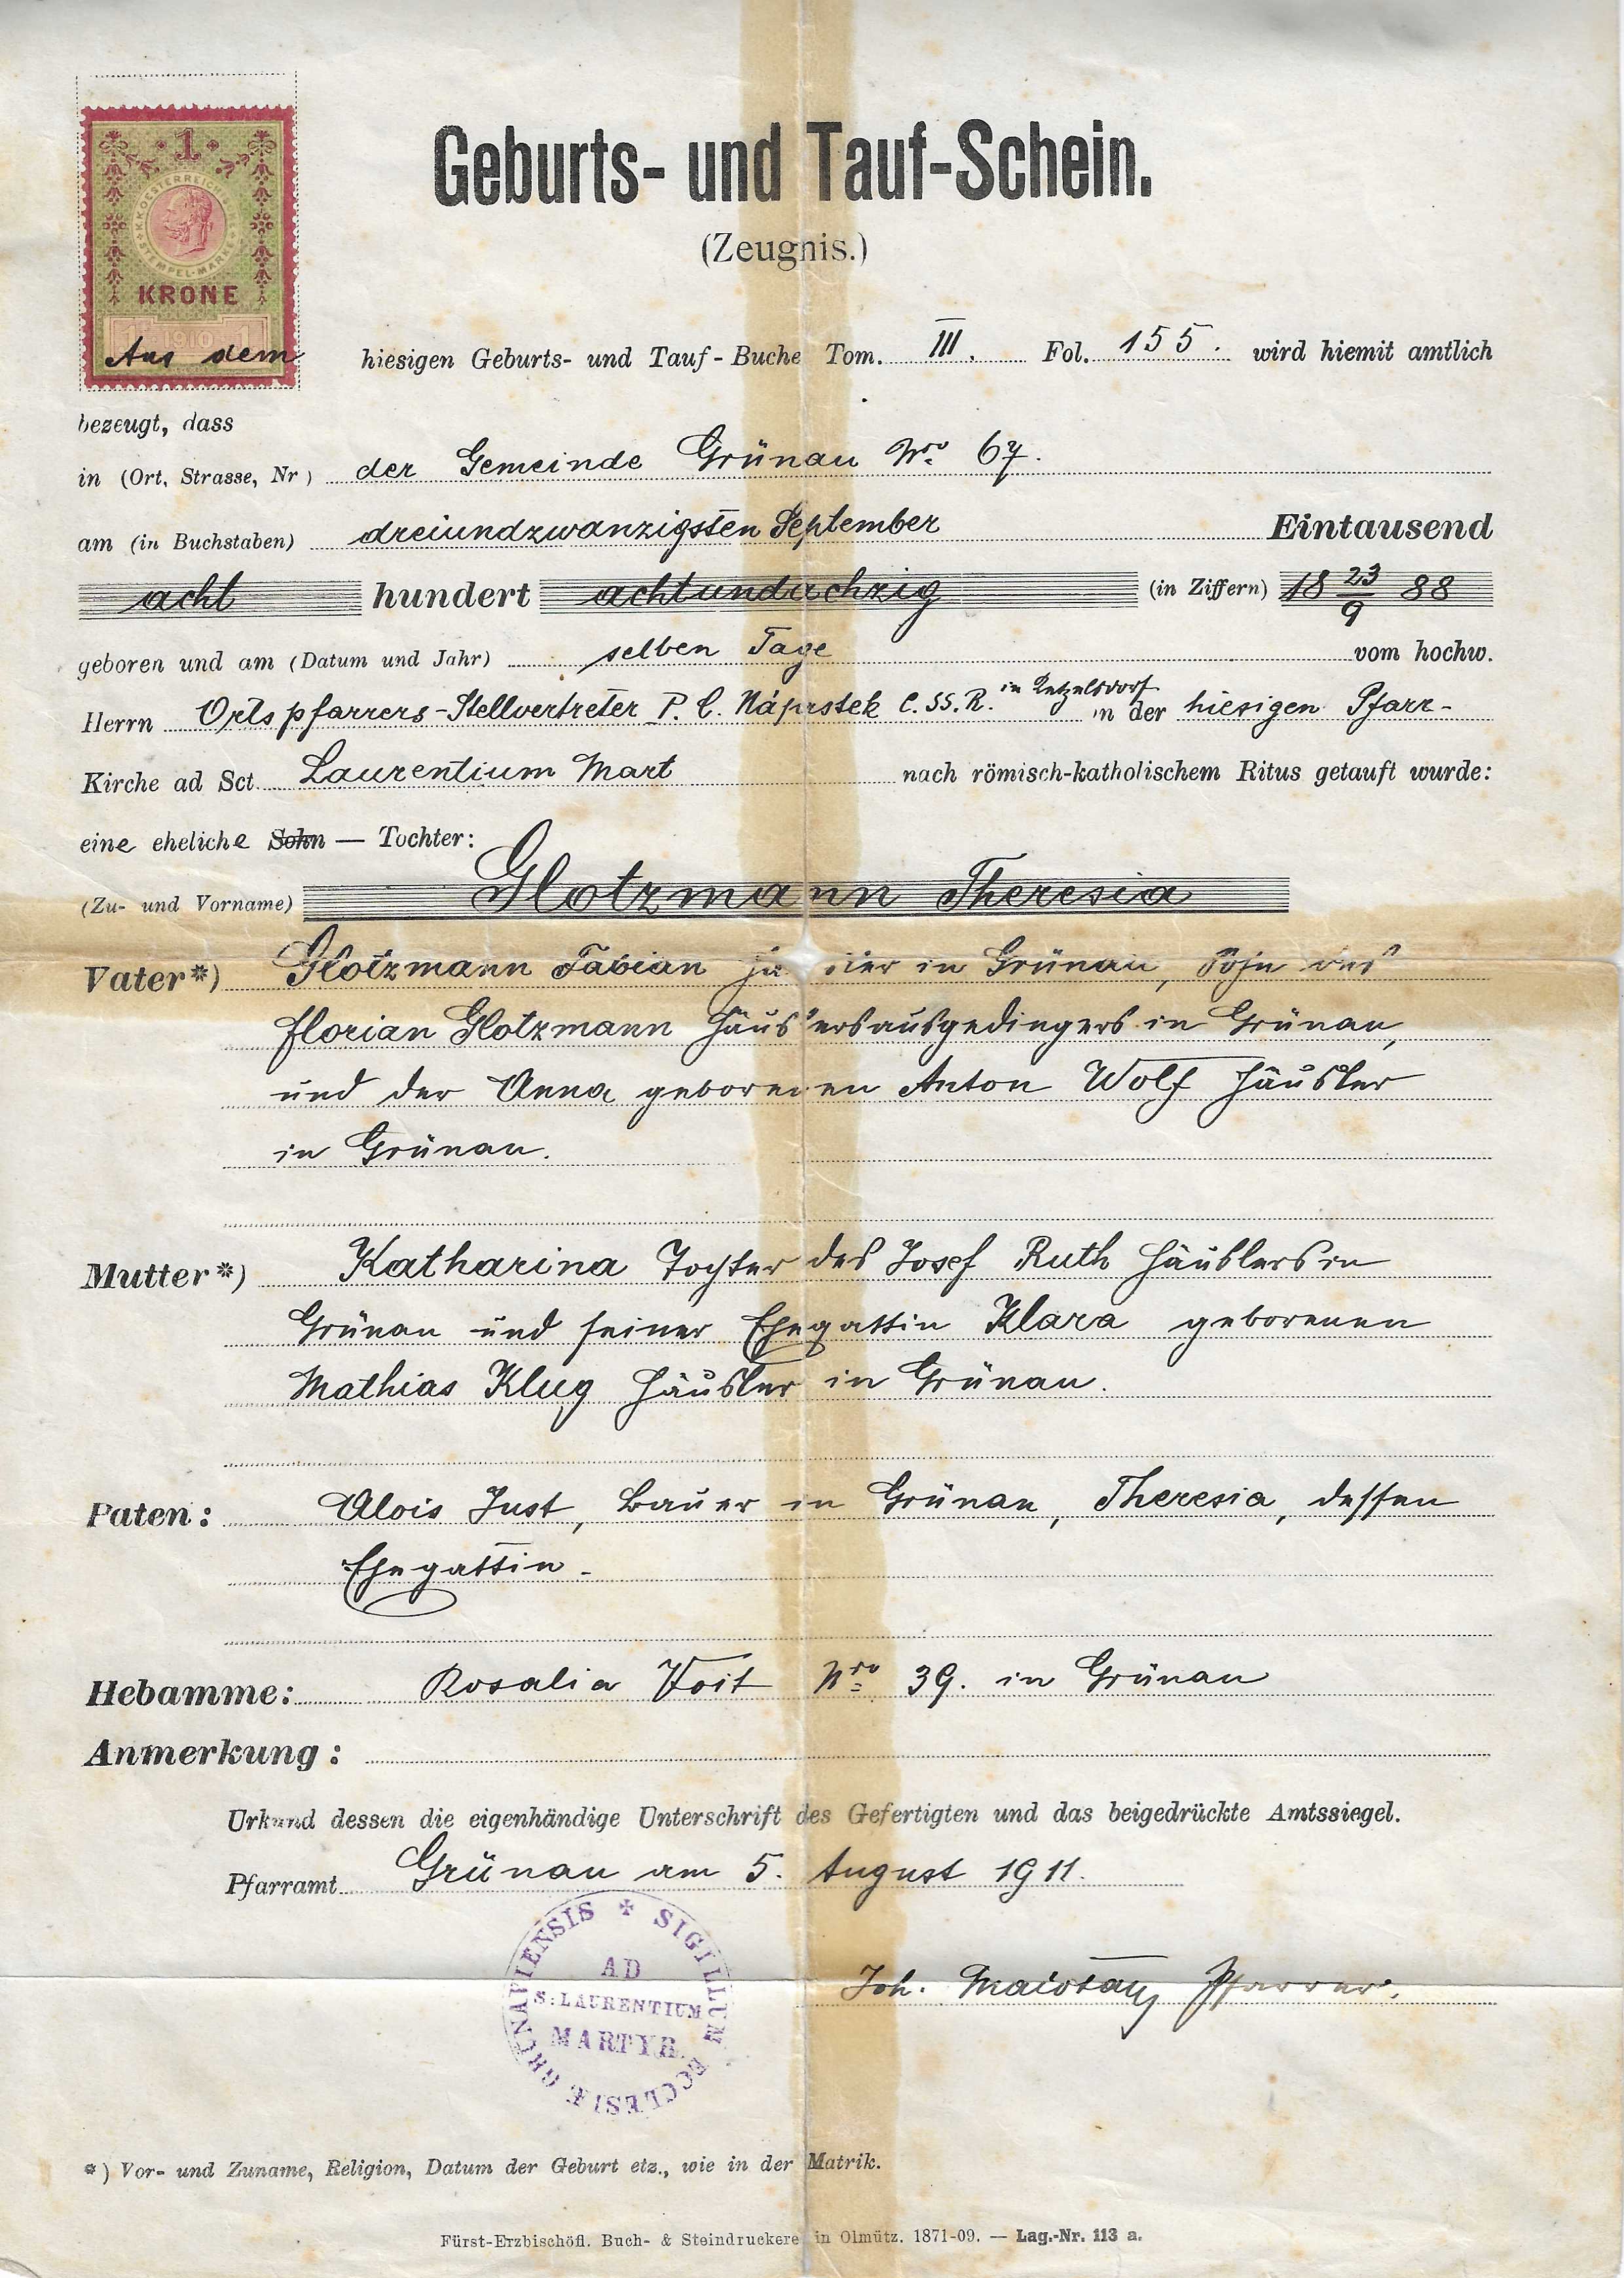 Geburts- und Tauf-Schein.
(Zeugnis.)
1
K.K. OESTERREICH.
STEMPEL-MARKE
KRONE
1 1910 1
Aus dem hiesigen Geburts- und Tauf-Buche Tom. III. Fol. 155. wird hiemit amtlich
bezeugt, dass
in (Ort, Strasse, Nr) der Gemeinde Grünau Nro 67.
am (in Buchstaben) dreiundzwanzigsten September Eintausend
acht hundert achtundachzig (in Ziffern) 18 23/9 88
geboren und am (Datum und Jahr) selben Tage vom hochw.
Herrn Ortspfarrers-Stellvertreter P. C. Náprstek C. SS. R. in Ketzelsdorf in der hiesigen Pfarr-
Kirche ad Sct. Laurentium Mart nach römisch-katholischem Ritus getauft wurde:
eine eheliche Sohn — Tochter:
(Zu- und Vorname) Glotzmann Theresia
Vater*) Glotzmann Fabian in Grünau, Sohn des
Florian Glotzmann Häuslersausgedingers in Grünau,
und der Anna geborenen Anton Wolf Häusler
in Grünau.
Mutter*) Katharina Tochter des Josef Ruth Häuslers in
Grünau und seiner Ehegattin Klara geborenen
Mathias Klug Häusler in Grünau.
Paten: Alois Just, Bauer in Grünau, Theresia, dessen
Ehegattin.
Hebamme: Rosalia Voit Nro 39. in Grünau
Anmerkung:
Urkund dessen die eigenhändige Unterschrift des Gefertigten und das beigedrückte Amtssiegel.
Pfarramt Grünau am 5. August 1911.
SIGILLUM ECCLESIÆ GRUNAVIENSIS
AD
S: LAURENTIUM
MARTYR.
Joh. Pfarrer.
*) Vor- und Zuname, Religion, Datum der Geburt etz., wie in der Matrik.
Fürst-Erzbischöfl. Buch- & Steindruckere in Olmütz. 1871-09. — Lag.-Nr. 113 a.